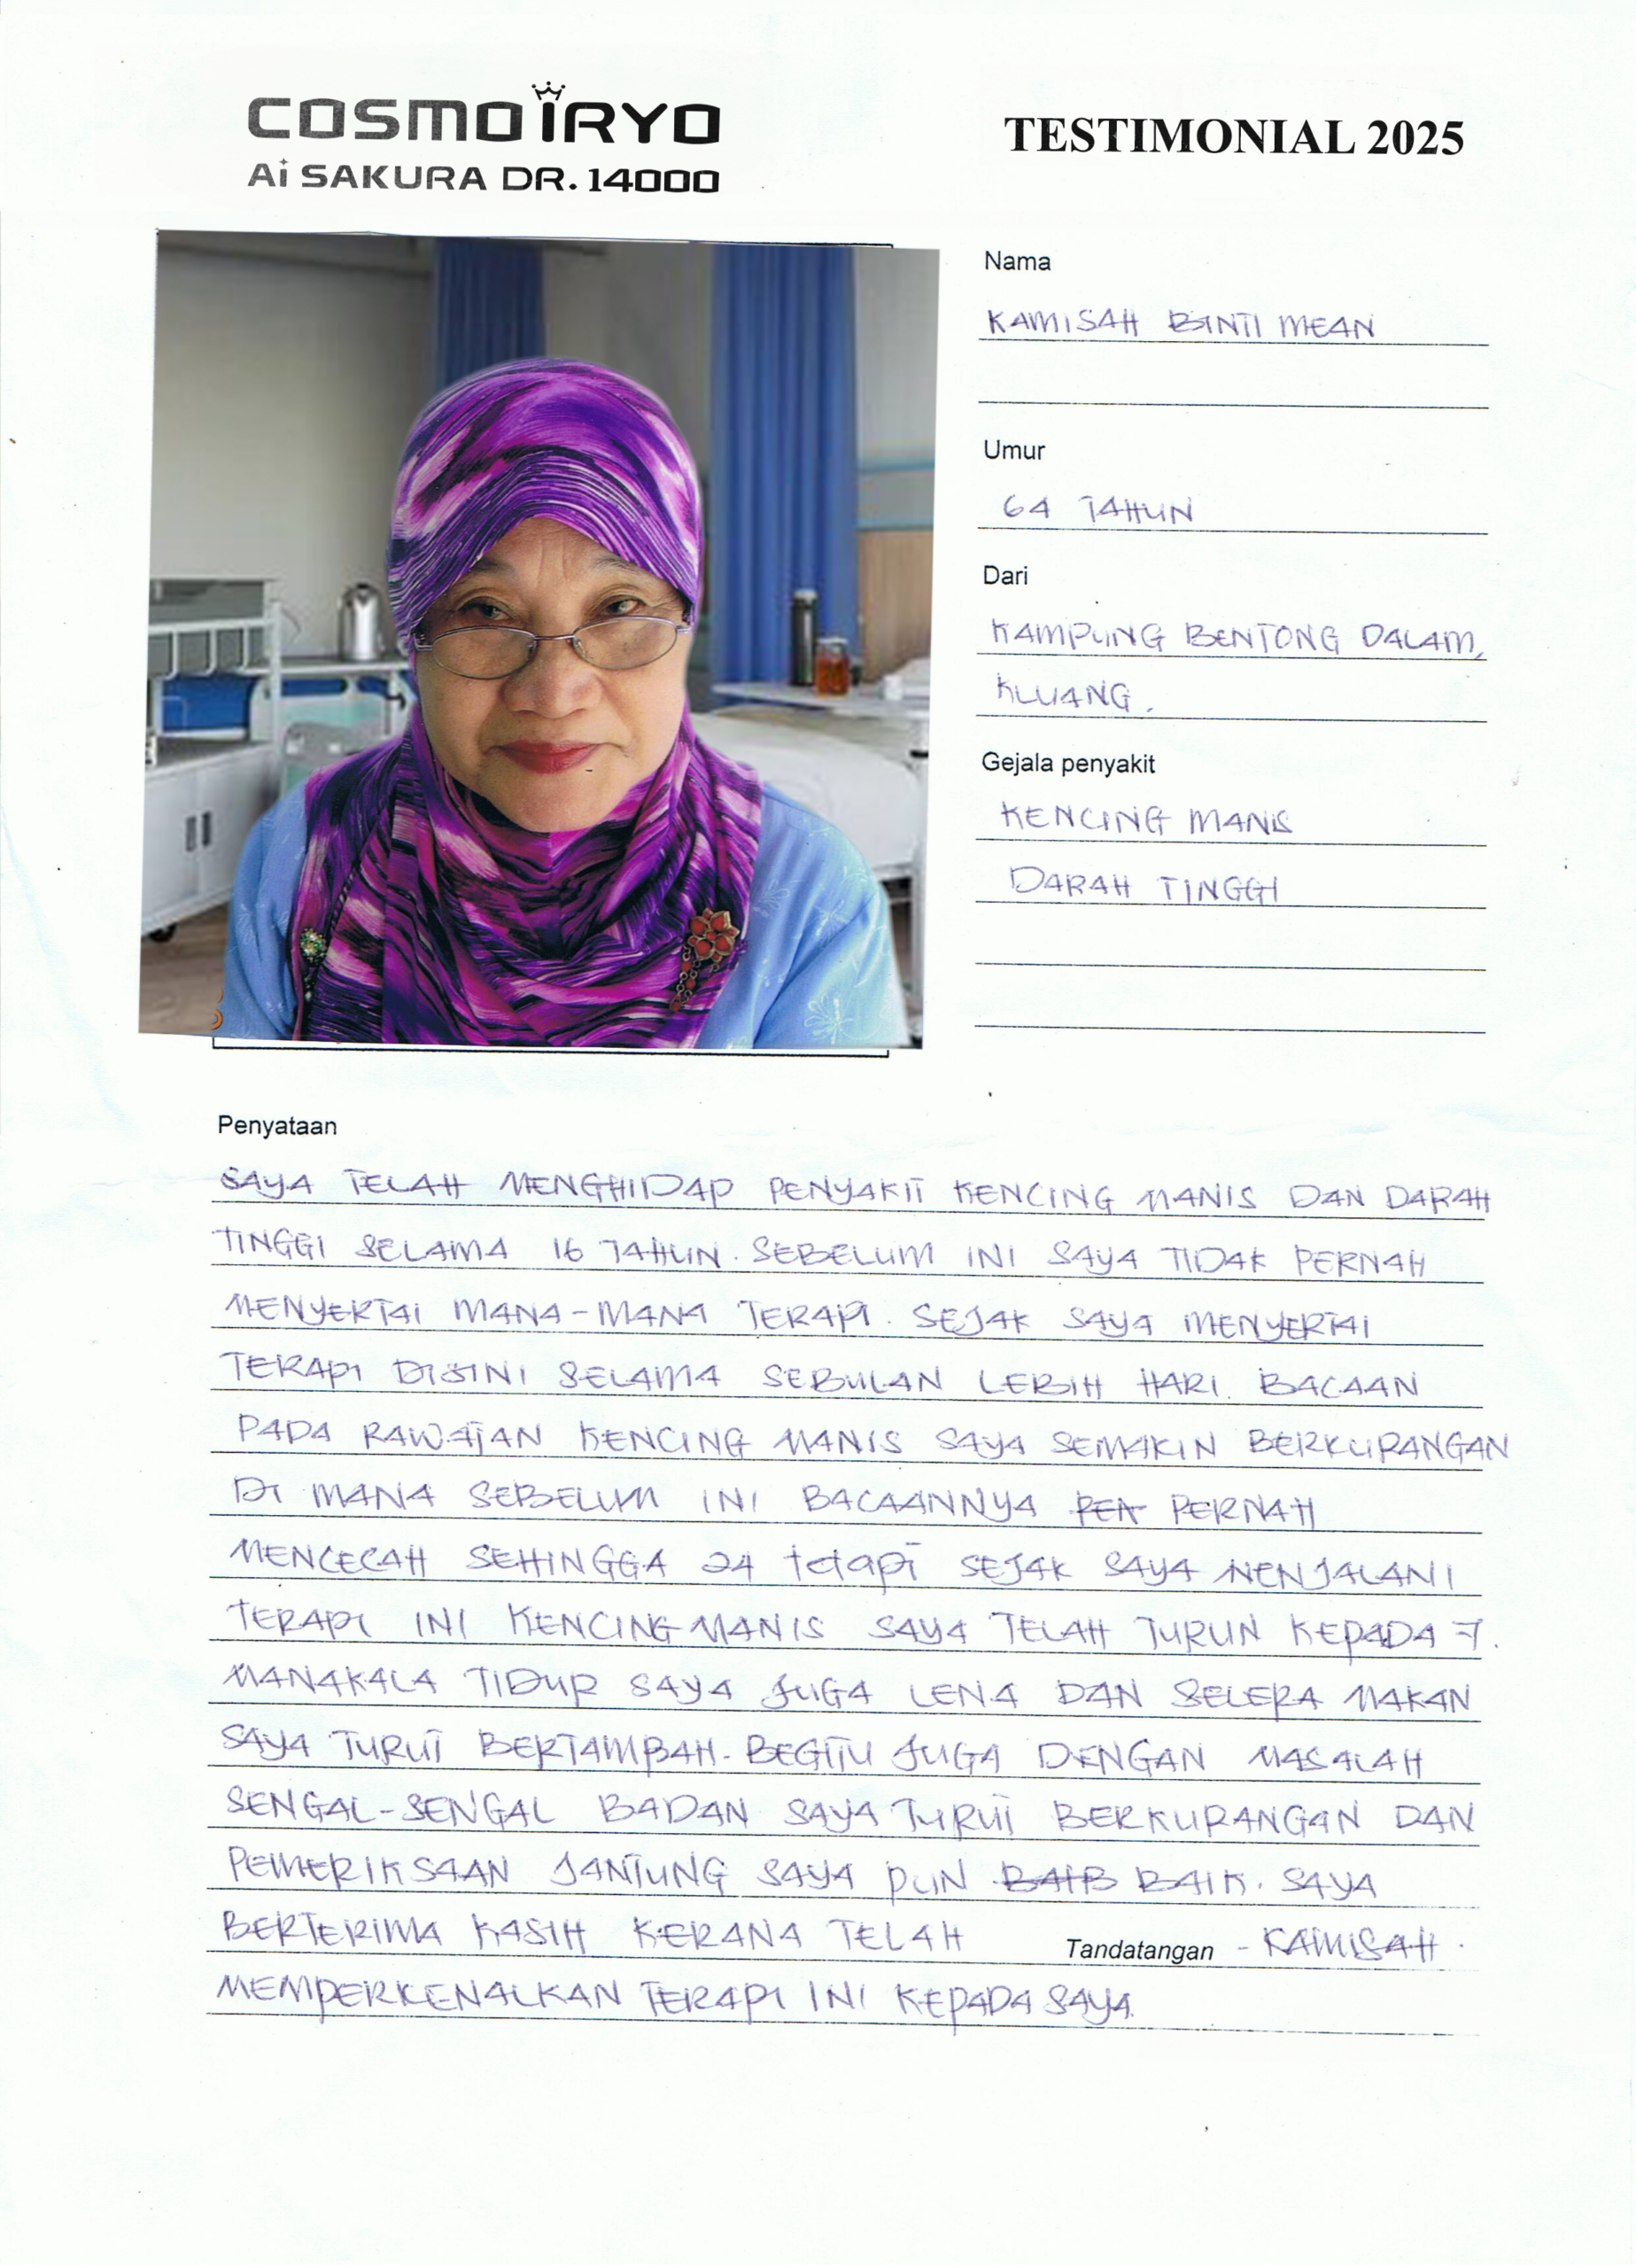 COSMOiRYO
Ai SAKURA DR. 14000
TESTIMONIAL 2025
Nama
KAMISAH BINTI MEAN
Umur
64 TAHUN
Dari
KAMPUNG BENTONG DALAM,
KLUANG.
Gejala penyakit
KENCING MANIS
DARAH TINGGI
Penyataan
SAYA TELAH MENGHIDAP PENYAKIT KENCING MANIS DAN DARAH
TINGGI SELAMA 16 TAHUN. SEBELUM INI SAYA TIDAK PERNAH
MENYERTAI MANA-MANA TERAPI. SEJAK SAYA MENYERTAI
TERAPI DISINI SELAMA SEBULAN LEBIH HARI. BACAAN
PADA RAWATAN KENCING MANIS SAYA SEMAKIN BERKURANGAN
DI MANA SEBELUM INI BACAANNYA PERNAH
MENCECAH SEHINGGA 24 tetapi SEJAK SAYA MENJALANI
TERAPI INI KENCING MANIS SAYA TELAH TURUN KEPADA 7.
MANAKALA TIDUR SAYA JUGA LENA DAN SELERA MAKAN
SAYA TURUT BERTAMBAH. BEGITU JUGA DENGAN MASALAH
SENGAL-SENGAL BADAN SAYA TURUT BERKURANGAN DAN
PEMERIKSAAN JANTUNG SAYA PUN BAIK. SAYA
BERTERIMA KASIH KERANA TELAH
Tandatangan - KAMISAH.
MEMPERKENALKAN TERAPI INI KEPADA SAYA.